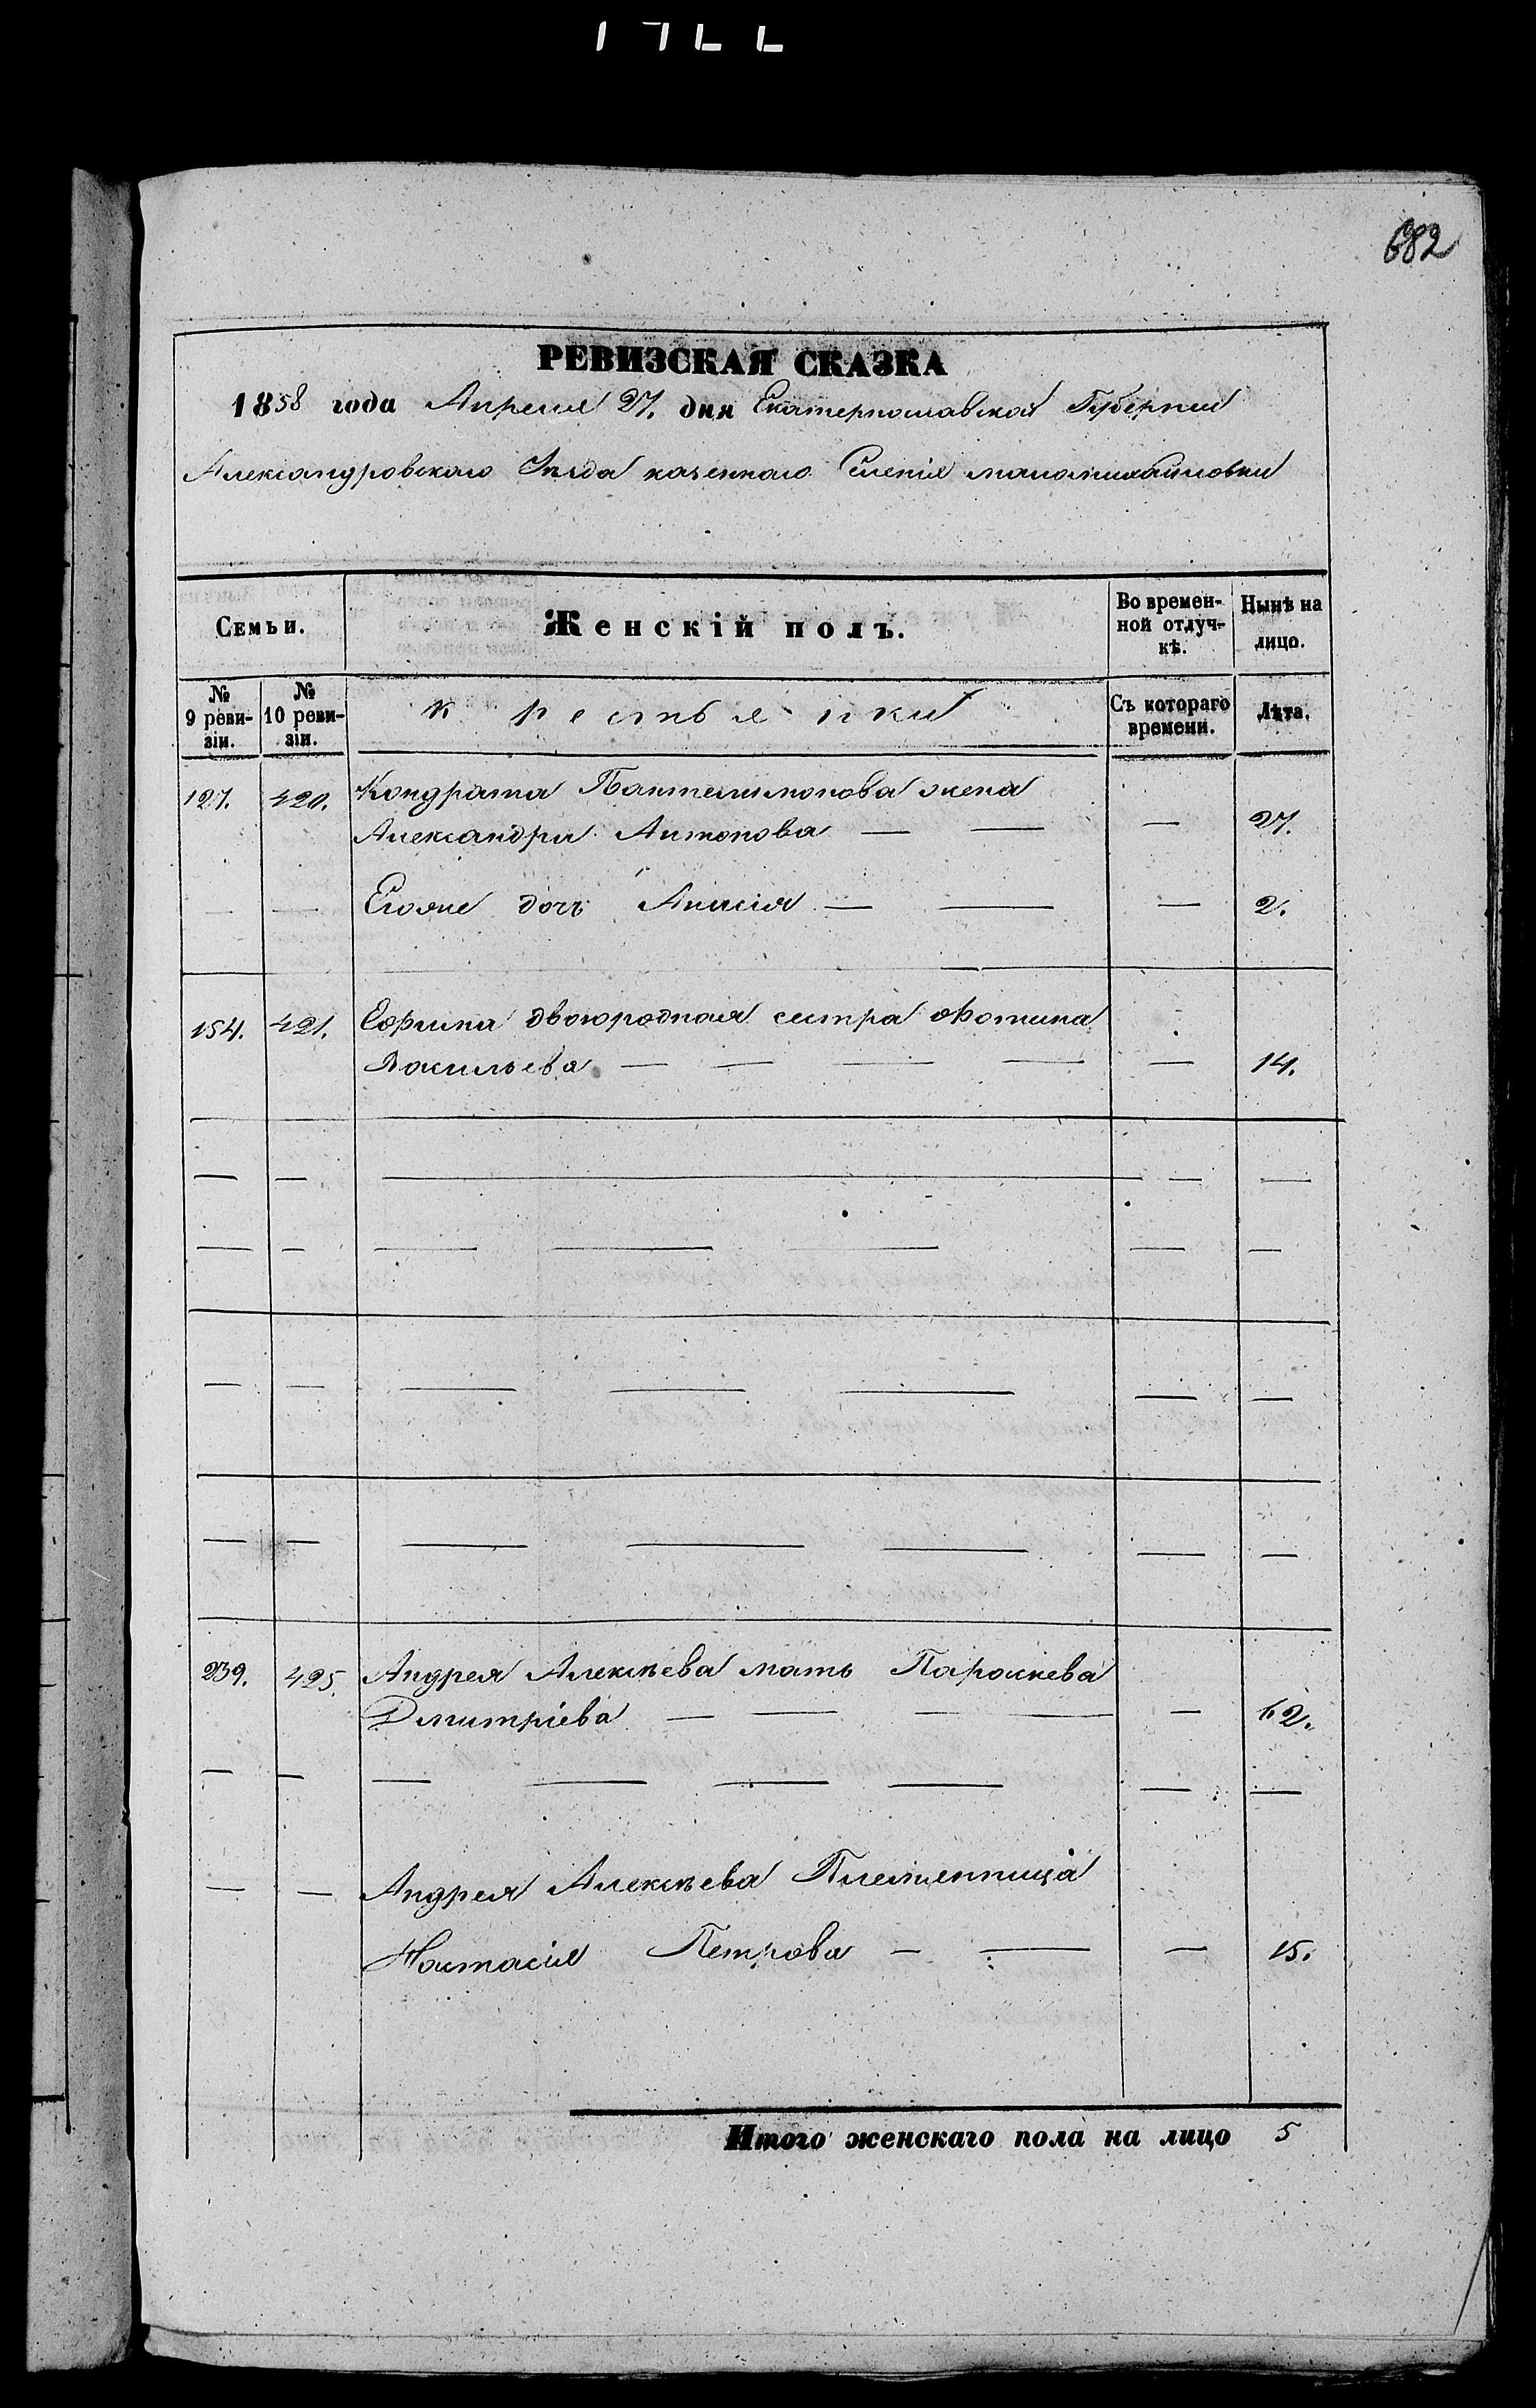 682
РЕВИЗСКАЯ СКАЗКА
1858 года Апреля 27. дня Екатеринославской Губернии
Александровского Уезда казенного Селенія маломихайловки
Семьи. Женскій полъ. Во времен-ной отлуч-кѣ. Нынѣ на лицо.
№ 9 реви-зіи. № 10 реви-зіи. крестьянки Съ котораго времени. Лѣта.
127. 420. Кондрата Пантелимонова жена
Александра Антонова — — — 27.
— — Егоже дочь Анасія — — — 2.
154. 421. Ефима двоюродная сестра Фотина
Васильева — — — — — 14.
— — — — —
— — — — — — —
— — — — — — —
— — — — — — —
239. 425. Андрея Алексѣева мать Параскева
Дмитріева — — — — — 62.
— — — — — — — —
— — Андрея Алексѣева Племенница
Настасія Петрова — — — 15.
Итого женскаго пола на лицо 5